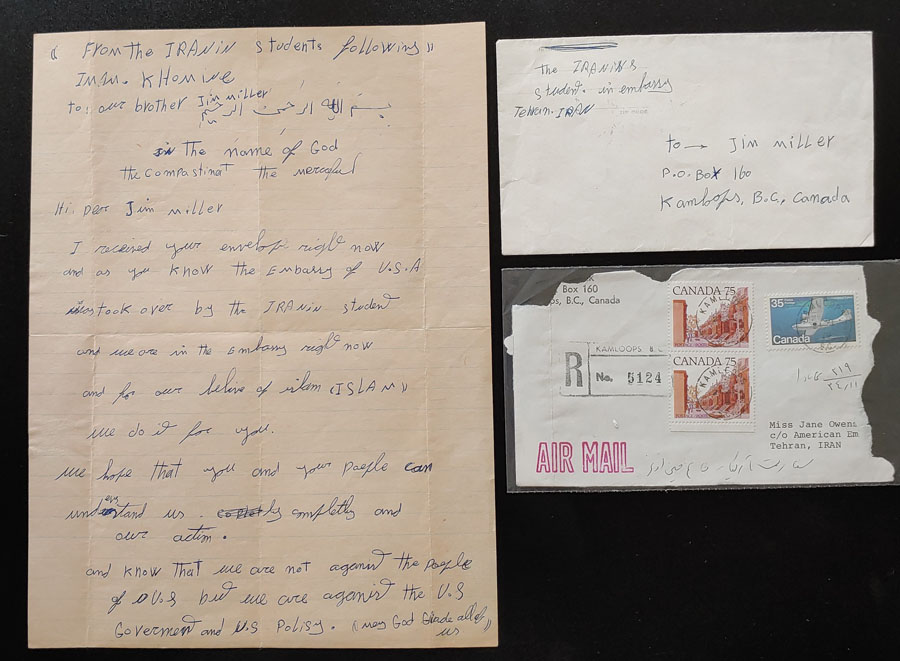 « From the IRANIN students following »
Imam. KHOMINE
to: our brother Jim Miller
بسم الله الرحمن الرحیم
in The name of God
the compastinat the merceful
Hi. Dear Jim Miller
I received your envelope right now
and as you know the Embassy of U.S.A
was took over by the IRANIN student
and we are in the Embassy right now
and for our belive of islam (ISLAM)
we do it for you.
we hope that you and your people can
understand us. completly and
our action.
and know that we are not against the people
of U.S but we are against the U.S
Goverment and U.S Polisy. (may God Guade all of us »
the IRANINS
student. in embassy
Tehran. IRAN
to → Jim Miller
P.O. Box 160
Kamloops, B.C., Canada
Box 160
ps, B.C., Canada
CANADA 75
KAML
35
Canada
R
KAMLOOPS B.C
No. 5124
CANADA 75
KAML
Miss Jane Owens
c/o American Em
Tehran, IRAN
AIR MAIL